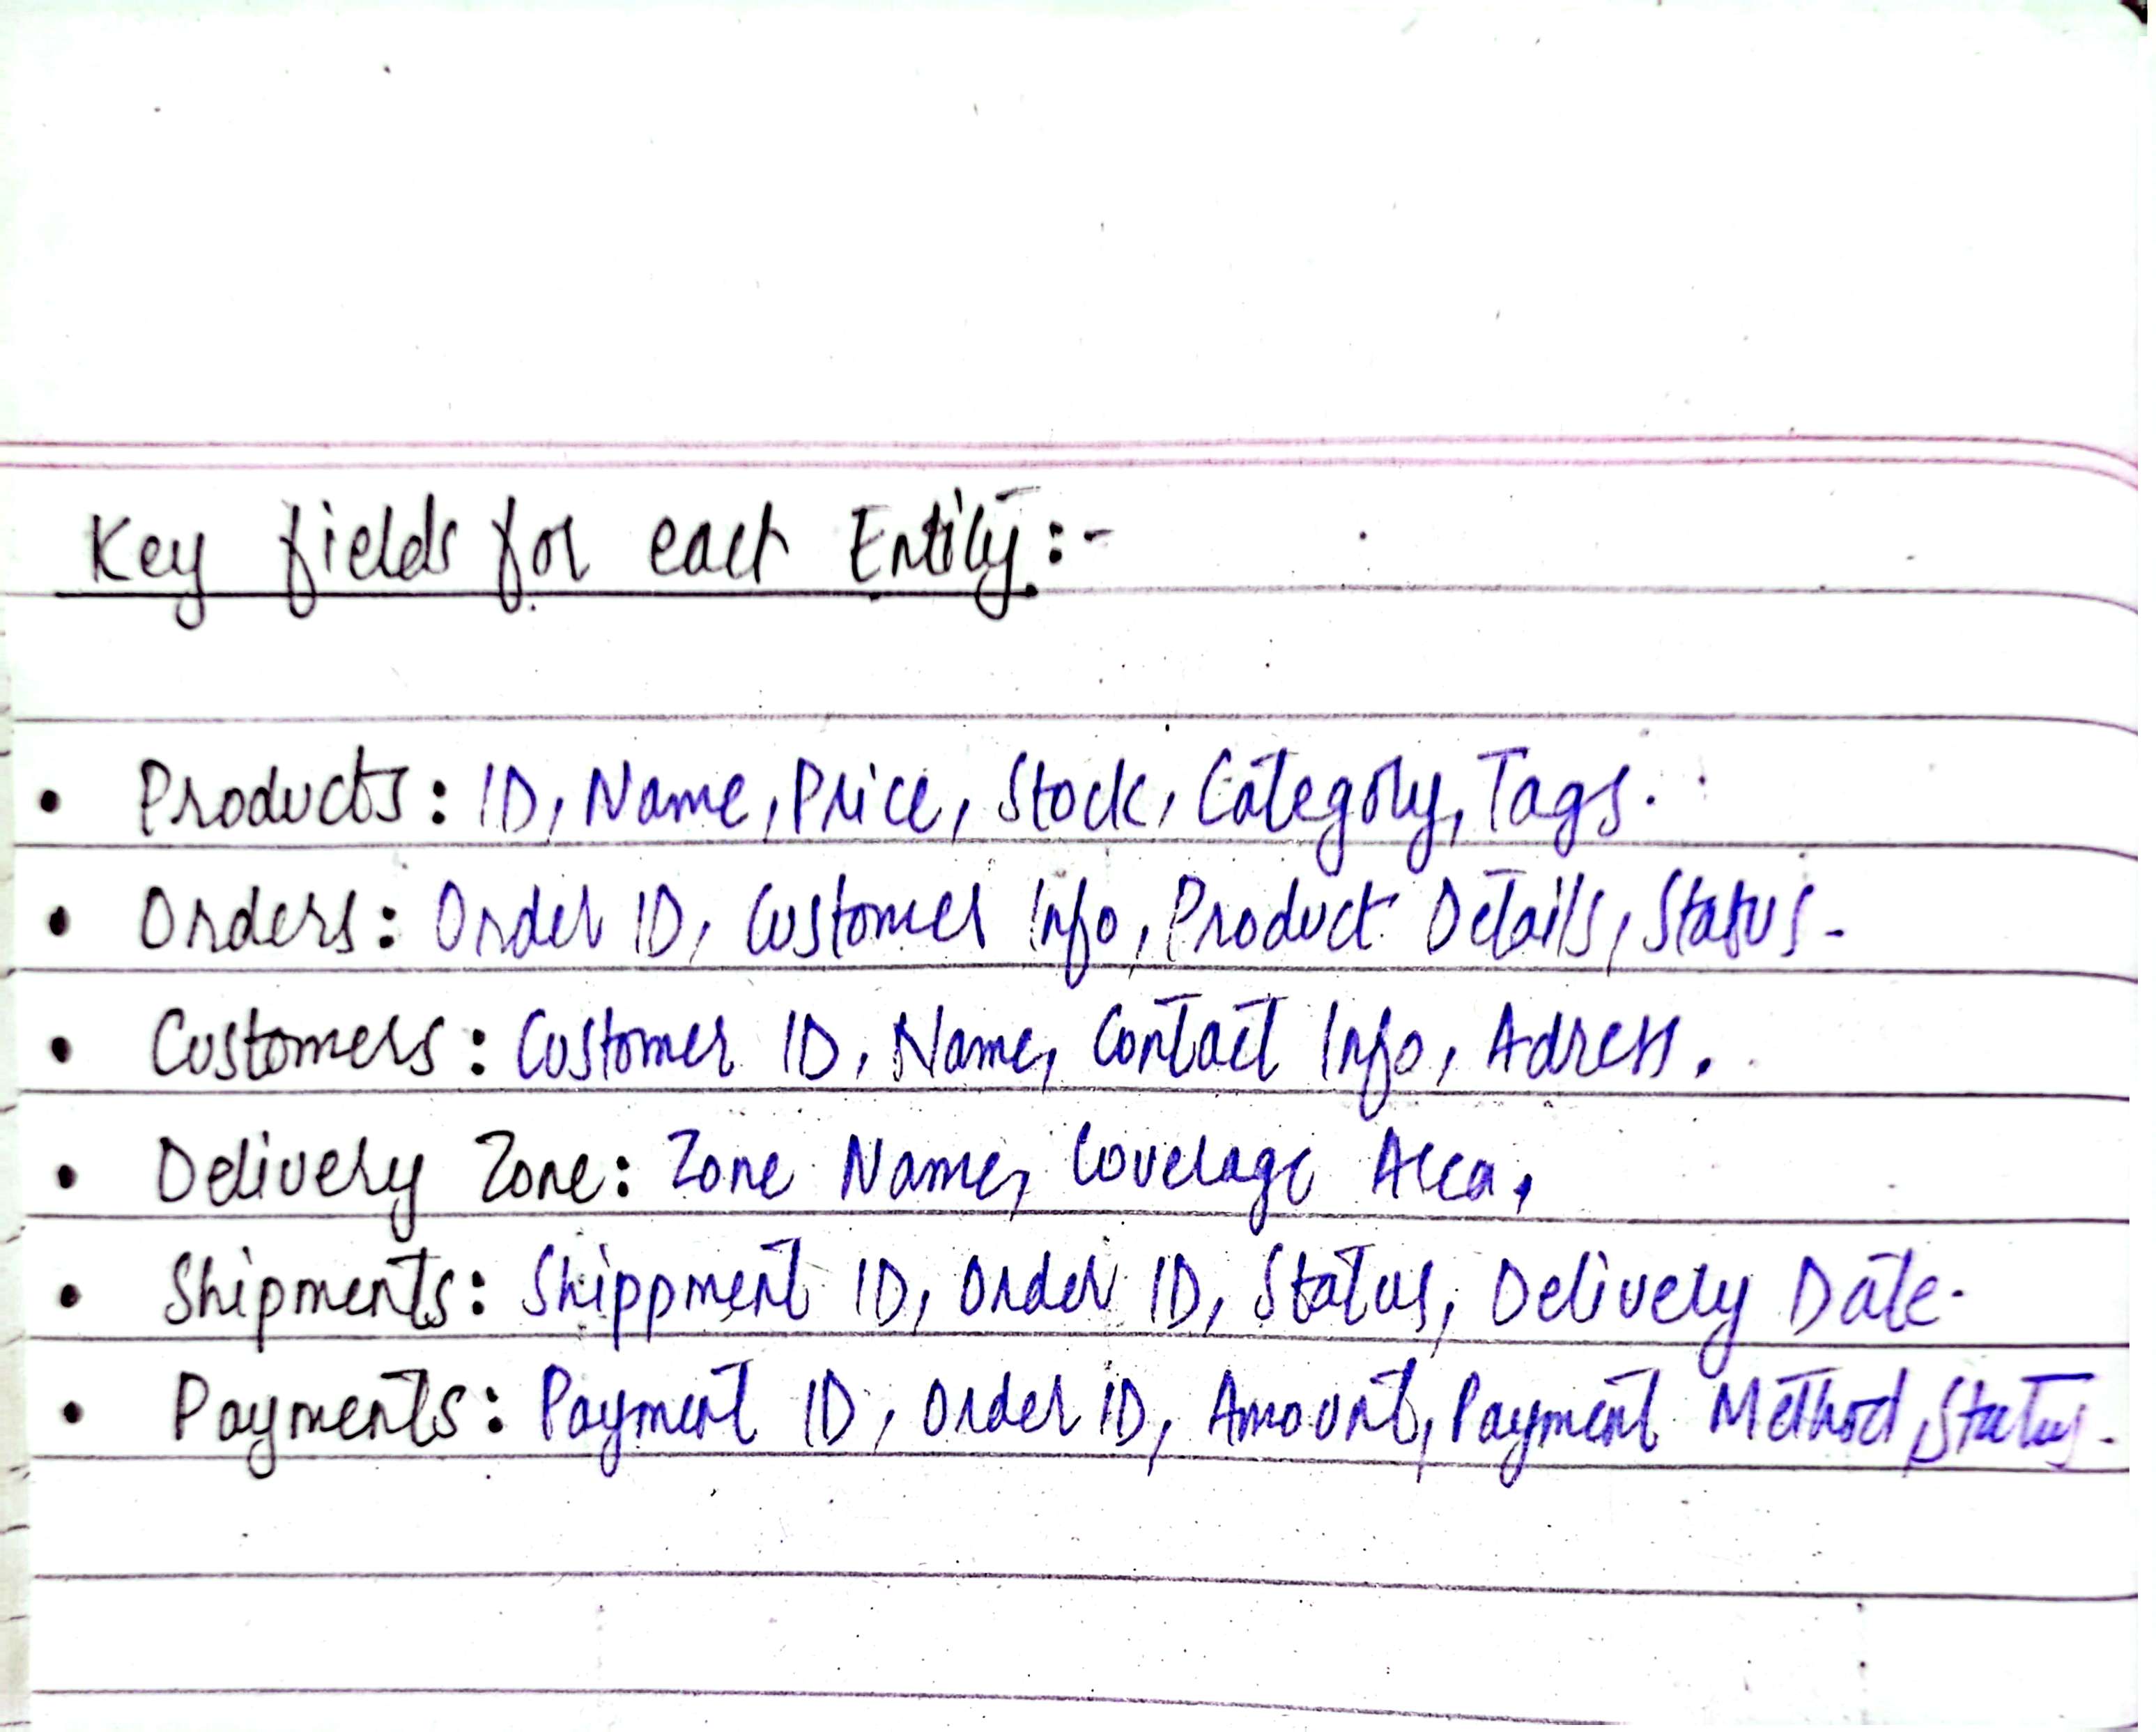 Key fields for each Entity:-
• Products: ID, Name, Price, Stock, Category, Tags.
• Orders: Order ID, Customer Info, Product Details, Status.
• Customers: Customer ID, Name, Contact Info, Adress.
• Delivery Zone: Zone Name, Coverage Area,
• Shipments: Shippment ID, Order ID, Status, Delivery Date.
• Payments: Payment ID, Order ID, Amount, Payment Method, Status.